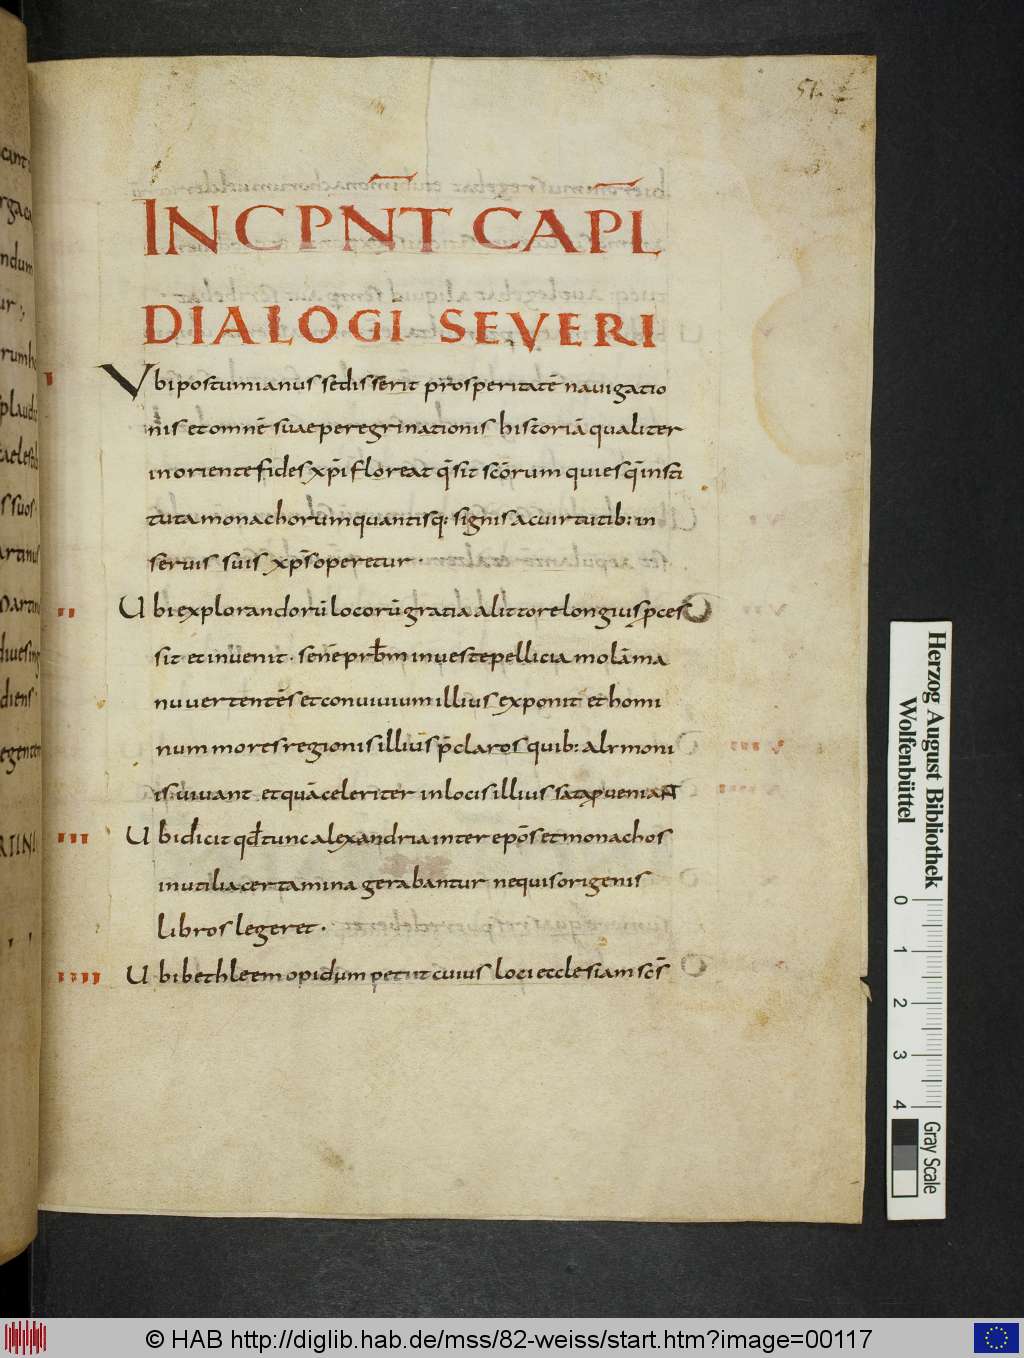 51.
INCPNT CAPL
DIALOGI SEVERI
Vbi postumianus se disserit prosperitatē nauigatio
nis et omnē suae peregrinationis historiā qualiter
in oriente fides xp̄i floreat q̄ sit scōrum quies q̄ insti
tuta monachorum quantisq: signis ac uirtutib: in
seruis suis xp̄s operetur ·
Ubi explorandorū locorū gratia a littore longius p̄ces
sit et inuenit · senē prb̄m in ueste pellicia molā ma
nu uertentē set conuiuium illius exponit et homi
num mores regionis illius p̄claros quib: a lr moni
is uiuant et quā celeriter in locis illius sata
Ubi dicit qd̄ tunc alexandria inter ep̄os et monachos
inutilia certamina gerabantur ne quis origenis
libros legeret ·
Ubi bethleem opidum petiit cuius loci ecclesiam sc̄s
Herzog August Bibliothek
Wolfenbüttel
0 1 2 3 4
Gray Scale
© HAB http://diglib.hab.de/mss/82-weiss/start.htm?image=00117